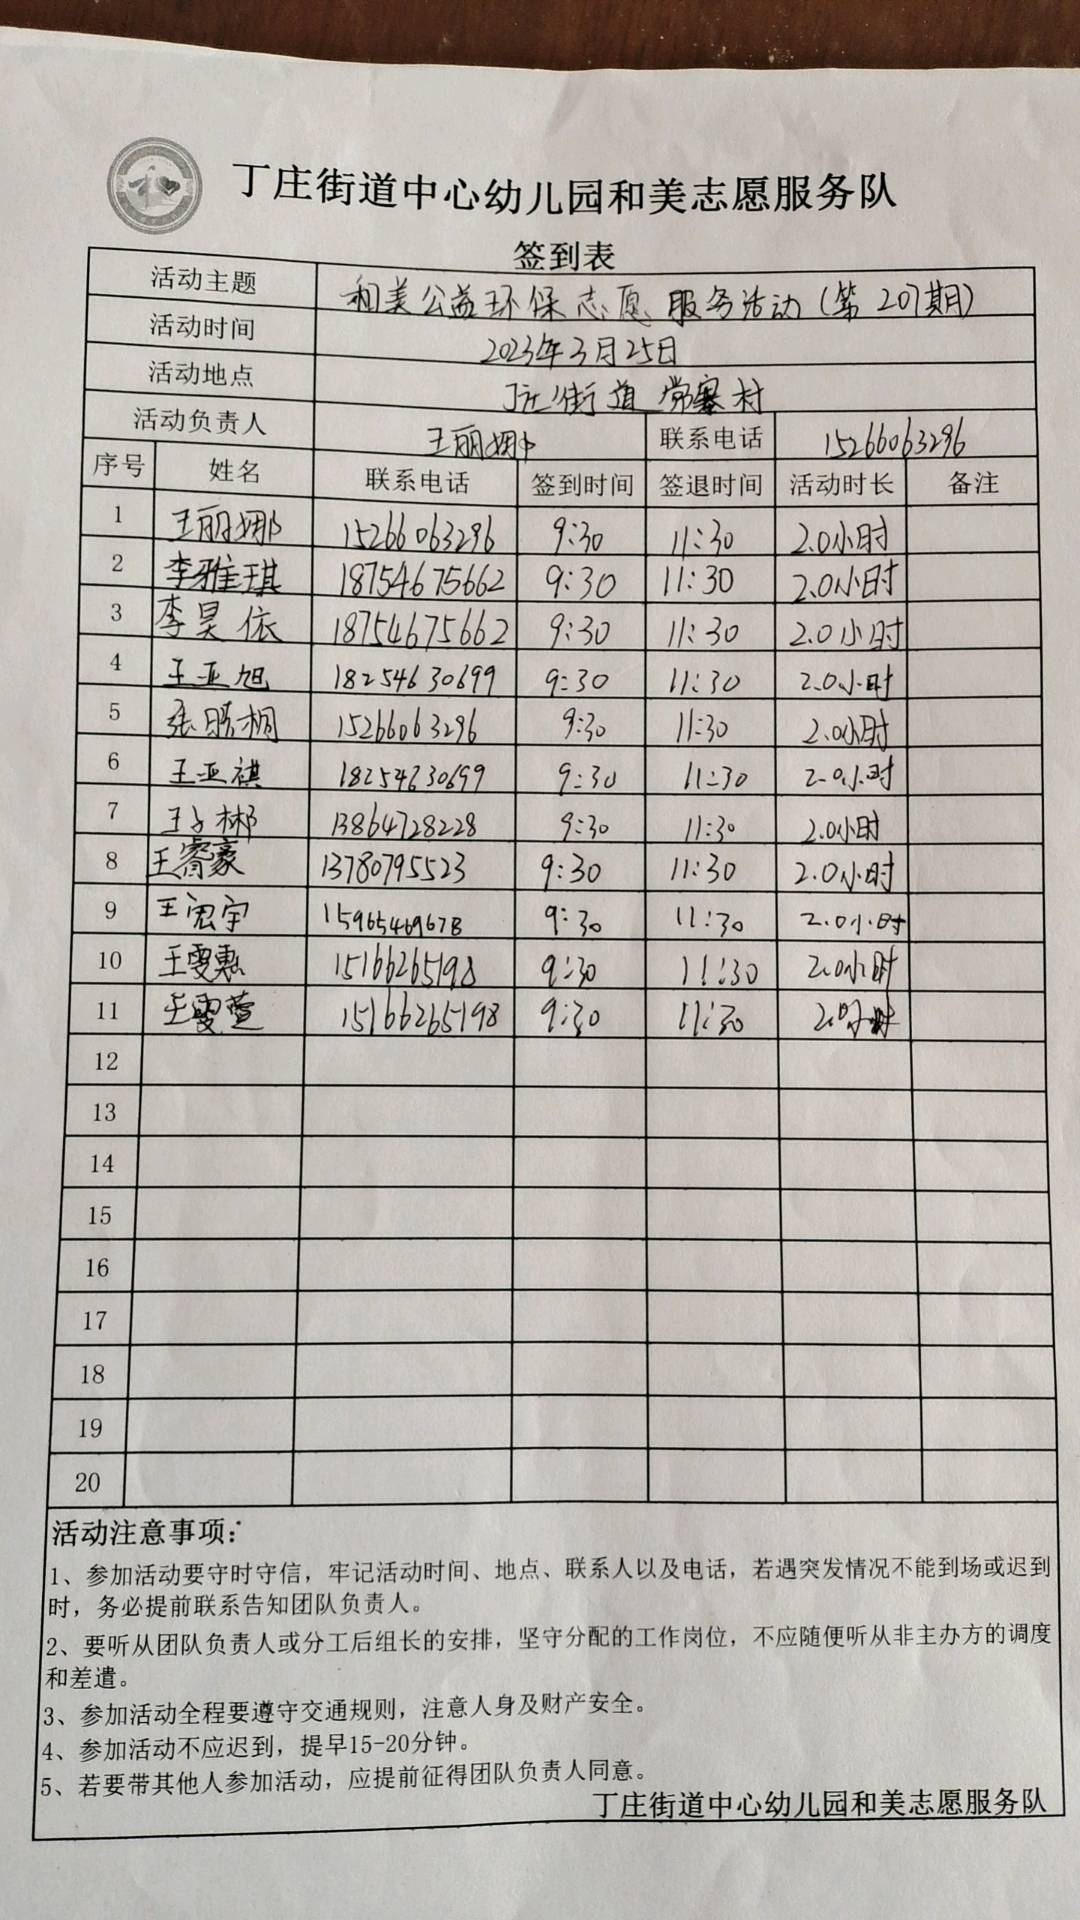 丁庄街道中心幼儿园和美志愿服务队
签到表
活动主题 和美公益环保志愿服务活动(第207期)
活动时间 2023年3月25日
活动地点 丁庄街道常寨村
活动负责人 王丽娜 联系电话 15266063296
序号 姓名 联系电话 签到时间 签退时间 活动时长 备注
1 王丽娜 15266063296 9:30 11:30 2.0小时
2 李雅琪 18754675662 9:30 11:30 2.0小时
3 李昊依 18754675662 9:30 11:30 2.0小时
4 王亚旭 18254630699 9:30 11:30 2.0小时
5 张晴桐 15266063296 9:30 11:30 2.0小时
6 王亚祺 18254630699 9:30 11:30 2.0小时
7 王子彬 13864728228 9:30 11:30 2.0小时
8 王睿豪 13780795523 9:30 11:30 2.0小时
9 王宇 15965469678 9:30 11:30 2.0小时
10 王雯惠 15166265198 9:30 11:30 2.0小时
11 王雯萱 15166265198 9:30 11:30 2.0小时
12
13
14
15
16
17
18
19
20
活动注意事项:
1、参加活动要守时守信，牢记活动时间、地点、联系人以及电话，若遇突发情况不能到场或迟到
时，务必提前联系告知团队负责人。
2、要听从团队负责人或分工后组长的安排，坚守分配的工作岗位，不应随便听从非主办方的调度
和差遣。
3、参加活动全程要遵守交通规则，注意人身及财产安全。
4、参加活动不应迟到，提早15-20分钟。
5、若要带其他人参加活动，应提前征得团队负责人同意。
丁庄街道中心幼儿园和美志愿服务队